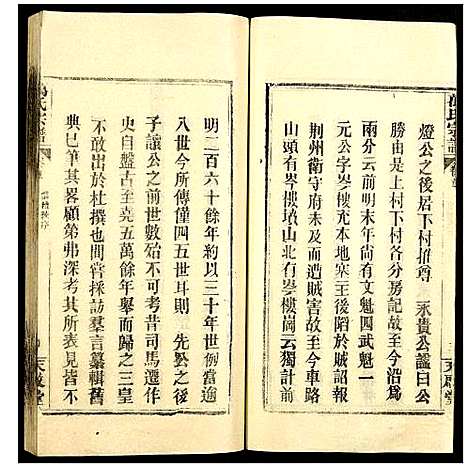 燈公之後居下村推尊 永貴公諡曰公
勝由是上村下村各分房記故至今沿為
兩分云前明末年尚有文魁四武魁一
元公字岑樓本地寨王後陷於賊詔報
荆州衛守府未及而遭賊害故至今車路
山頭有岑樓墳山北有岑樓崗云獨計前
明二百六十餘年約以三十年世例當逾
八世今所傳僅四五世耳則 先公之後
子讓公之前世數殆不可考昔司馬遷作
史自盤古至堯五萬餘年舉而歸之三皇
不敢出於杜撰也間嘗採訪羣言纂輯舊
典巳筆其畧顧第弗深考其所表見皆不
氏宗譜
天啟堂